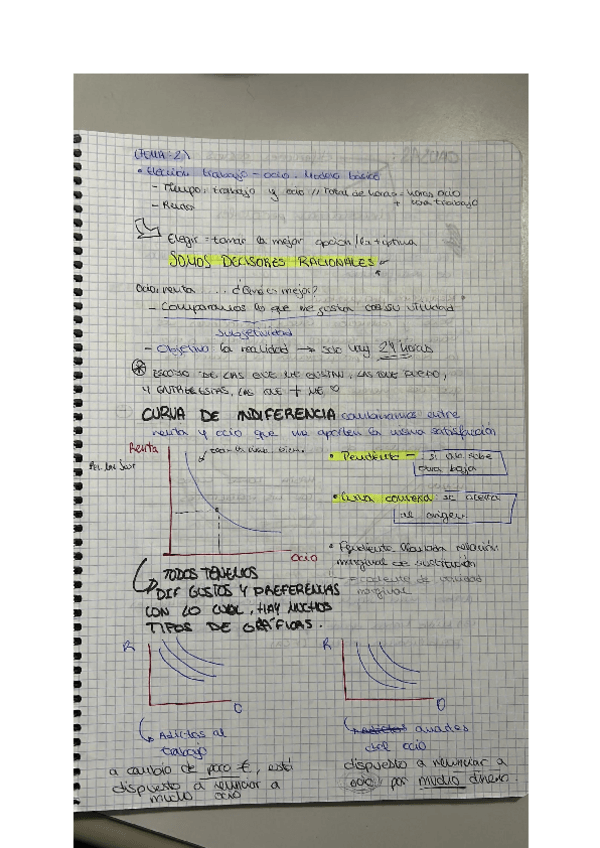 (TEMA 2)
• Elección trabajo - ocio. Modelo básico
- Tiempo: trabajo y ocio // Total de horas = horas ocio
+ trabajo
- Renta
Elegir = tomar la mejor opción / la + óptima
SOMOS DECISORES RACIONALES
Ocio, renta ... ¿Qué es mejor?
- Comparamos lo que me gusta con su utilidad
subjetividad
- Objetivo la realidad → solo hay 24 horas
ESCOJO DE LAS QUE ME GUSTAN, LAS QUE PUEDO,
Y ENTRE ESTAS, LAS QUE + ME ♡
CURVA DE INDIFERENCIA combinamos entre
renta y ocio que me aporten la misma satisfacción
Renta
• Pendiente - : si uno sube
otro baja
• Curva convexa: se acerca
al origen
Ocio
• Pendiente llamada relación
marginal de sustitución
= cociente de utilidad
marginal
TODOS TENEMOS
DIF GUSTOS Y PREFERENCIAS
CON LO CUAL, HAY MUCHOS
TIPOS DE GRÁFICAS.
R
O
R
O
Adictos al
trabajo
amantes
del ocio
a cambio de poco €, está
dispuesto a renunciar a
mucho ocio
dispuesto a renunciar a
ocio por mucho dinero.